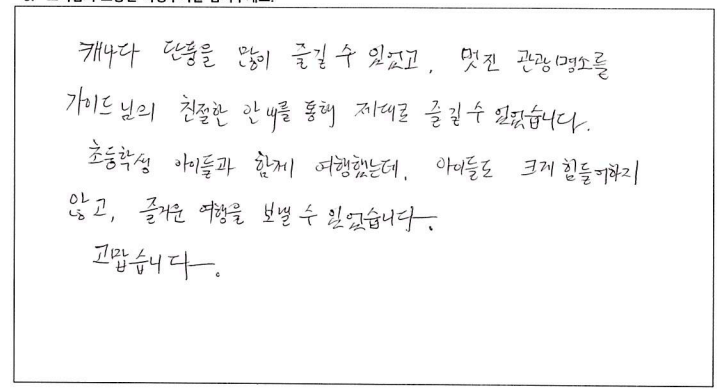 캐나다 단풍을 많이 즐길 수 있었고, 멋진 관광명소를
가이드님의 친절한 안내를 통해 제대로 즐길 수 있었습니다.
초등학생 아이들과 함께 여행했는데, 아이들도 크게 힘들어하지
않고, 즐거운 여행을 보낼 수 있었습니다.
고맙습니다.